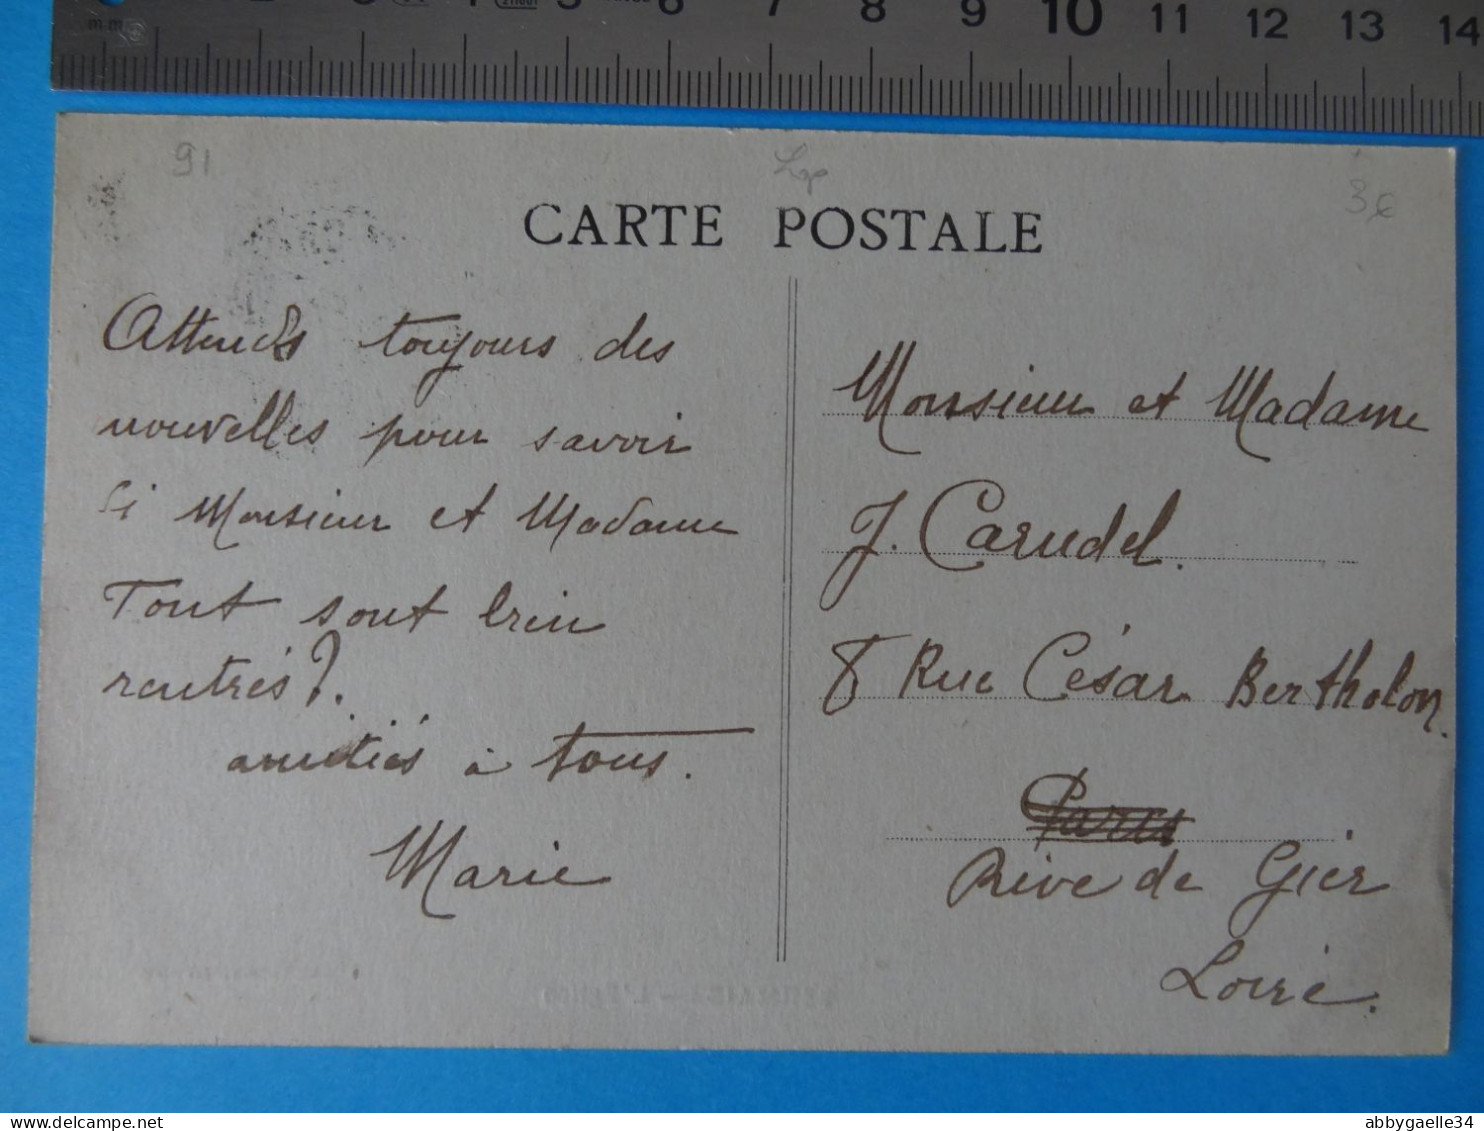 m.m 6 7 8 9 10 11 12 13 14
91
3€
CARTE POSTALE
Attends toujours des
nouvelles pour savoir
si Monsieur et Madame
Tout sont bien
rentrés ?.
amitiés à tous.
Marie
Monsieur et Madame
J. Carudel.
8 Rue César Bertholon.
Paris
Rive de Gier
Loire.
delcampe.net
abbygaelle34